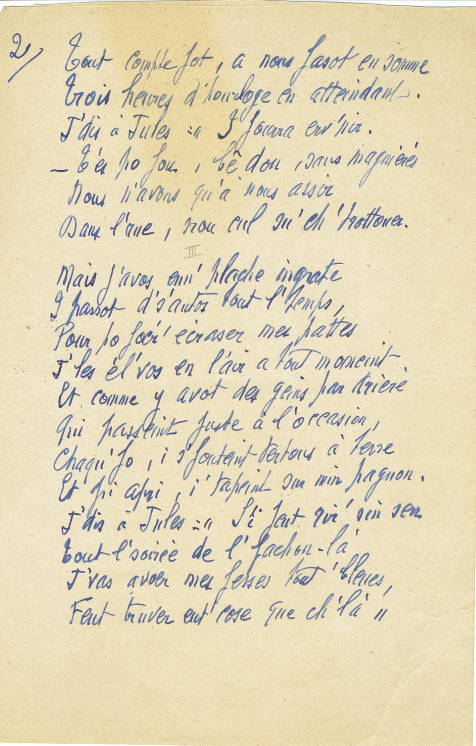 2/
Tout compte fot, a nous fasot en somme
Trois heures d'hourloge en atteindant.
J'dis à Jules :« I fourra erv'nir.
— T'és po fou, bê don, sans magnières
Nous n'avons qu'à nous assir
Dans l'rue, mon cul su ch' trottoner.
III
Mais j'avos enn' plache ingrate
I passot d's'autos tout l'temps,
Pour po foër' écraser mes pattes
J'les él'vos en l'air a tout momeint
Et comme y avot des geins par drière
Qui passeint juste à l'occasion,
Chaqu' fo, i s'fouteint tertous à terre
Et pi apri, i' tapeint sur min pagnon.
J'dis à Jules :« S'i feut qu'i' sin sen
Tout l'soirée de l'fachon-là
J'vas avoer mes fesses tout' bleues,
Feut truver eut' cose que ch'là »